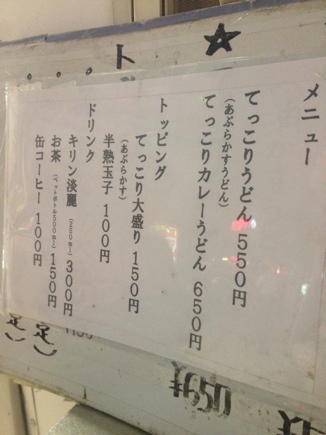 メニュー
てっこりうどん 550円
(あぶらかすうどん)
てっこりカレーうどん 650円
トッピング
てっこり大盛り 150円
(あぶらかす)
半熟玉子 100円
ドリンク
キリン淡麗(350ml) 300円
お茶(ペットボトル500ml) 150円
缶コーヒー 100円
ト
定)
定)